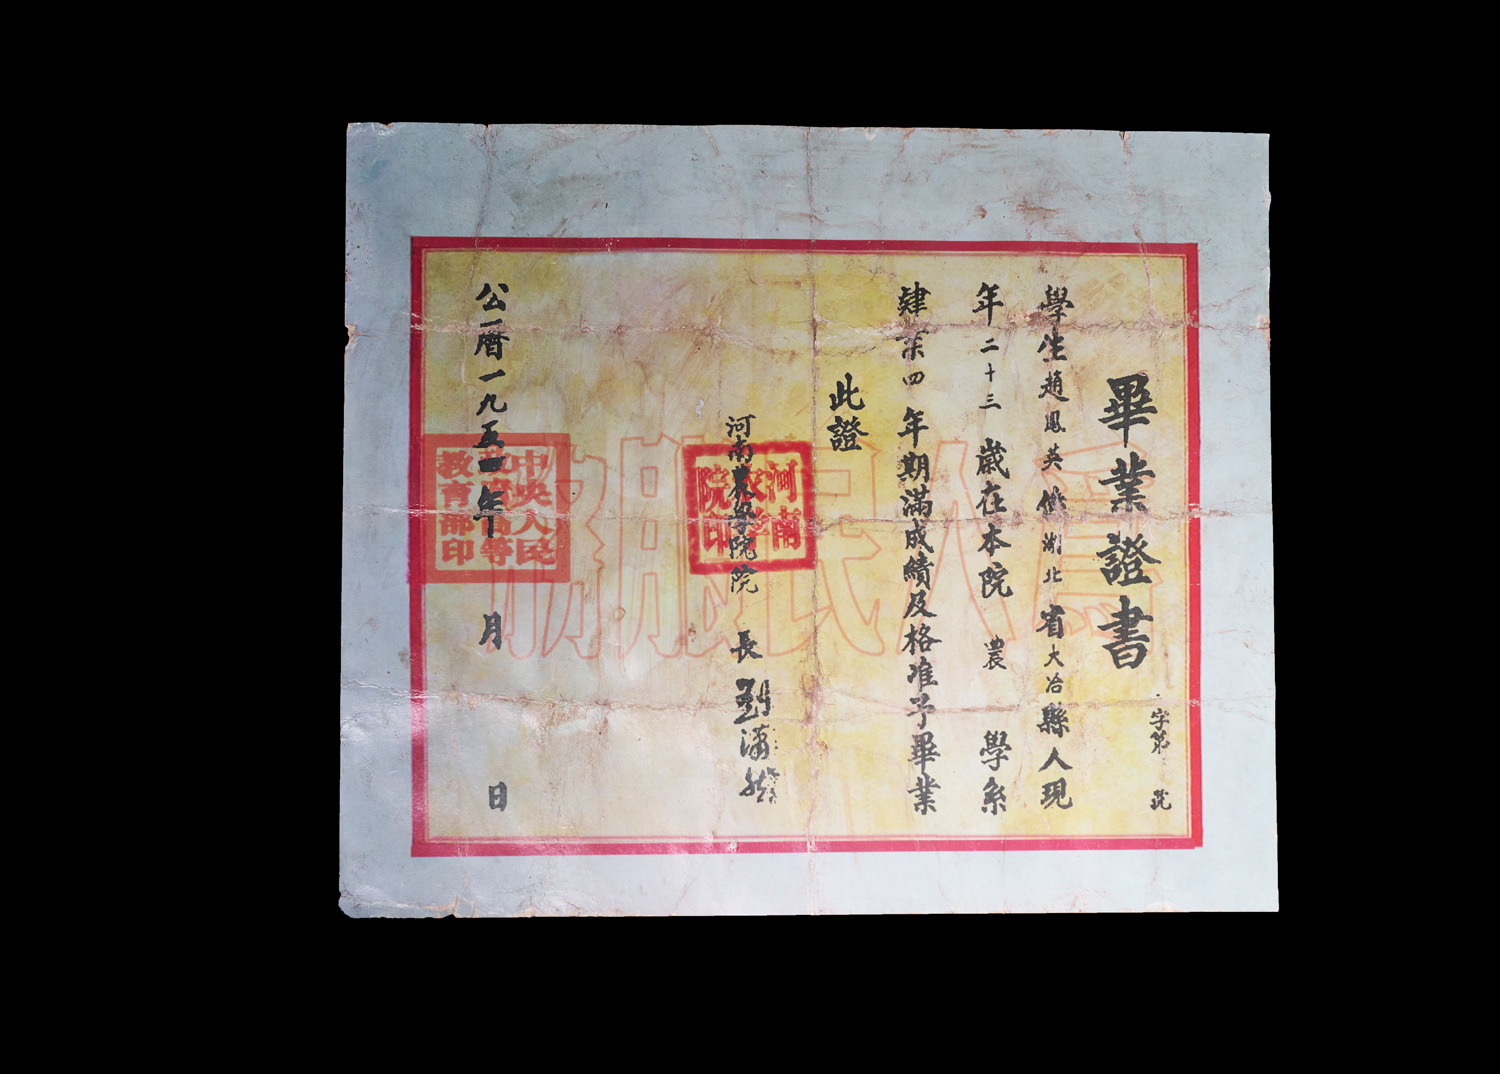 畢業證書
字第 號
學生趙鳳英係湖北省大冶縣人現
年二十三歲在本院農學系
肄業四年期滿成績及格准予畢業
此證
河南農學院院長劉瀟然
河南農學院印
公曆一九五一年 月 日
中央人民政府高等教育部印
為人民服務